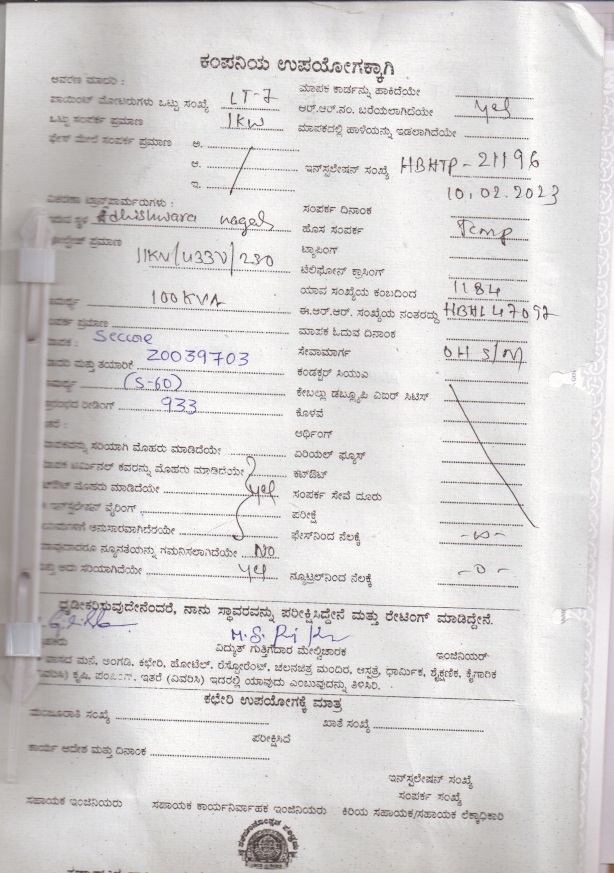 ಕಂಪನಿಯ ಉಪಯೋಗಕ್ಕಾಗಿ
ಆವರಣ ಮಾದರಿ :
ಮಾಪಕ ಕಾರ್ಡನ್ನು ಹಾಕಿದೆಯೇ
ಪಾಯಿಂಟ್ ಮೋಟರುಗಳು ಒಟ್ಟು ಸಂಖ್ಯೆ LT-7
ಆರ್.ಆರ್.ನಂ. ಬರೆಯಲಾಗಿದೆಯೇ Yes
ಒಟ್ಟು ಸಂಪರ್ಕ ಪ್ರಮಾಣ 1KW
ಮಾಪಕದಲ್ಲಿ ಹಾಳೆಯನ್ನು ಇಡಲಾಗಿದೆಯೇ
ಫೇಸ್ ಮೇಲೆ ಸಂಪರ್ಕ ಪ್ರಮಾಣ ಅ.
ಆ.
ಇನ್‌ಸ್ಪಲೇಷನ್ ಸಂಖ್ಯೆ HBHTP-21196
ಇ.
10.02.2023
ವಿತರಣಾ ಟ್ರಾನ್ಸ್‌ಫಾರ್ಮರುಗಳು :
ಸಂಪರ್ಕ ದಿನಾಂಕ
ಇರುವ ಸ್ಥಳ Adhishwara nagar
ಹೊಸ ಸಂಪರ್ಕ Temp
ವೋಲ್ಟೇಜ್ ಪ್ರಮಾಣ
11KV/433V/230
ಟ್ಯಾಪಿಂಗ್
ಟೆಲಿಫೋನ್ ಕ್ರಾಸಿಂಗ್
ಯಾವ ಸಂಖ್ಯೆಯ ಕಂಬದಿಂದ 1184
ಸಾಮರ್ಥ್ಯ 100KVA
ಈ.ಆರ್.ಆರ್. ಸಂಖ್ಯೆಯ ನಂತರದ್ದು HBHL47097
ಸಂಪರ್ಕ ಪ್ರಮಾಣ
ಮಾಪಕ ಓದುವ ದಿನಾಂಕ
ಮಾಪಕ : Secure
ಸೇವಾಮಾರ್ಗ OH S/M
ಮಾದರಿ ಮತ್ತು ತಯಾರಿಕೆ 20039703
ಕಂಡಕ್ಟರ್ ಸಿಯುಎ
ಸಾಮರ್ಥ್ಯ (5-60)
ಕೇಬಲ್ಲು ಡಬ್ಲ್ಯೂಪಿ ಏಐರ್ ಸಿಟಿಸ್
ಪ್ರಾರಂಭದ ರೀಡಿಂಗ್ 933
ಕೊಳವೆ
ಅರ್ಥಿಂಗ್
ಮಾಪಕವನ್ನು ಸರಿಯಾಗಿ ಮೊಹರು ಮಾಡಿದೆಯೇ
ಏರಿಯಲ್ ಫ್ಯೂಸ್
ಮಾಪಕ ಟರ್ಮಿನಲ್ ಕವರನ್ನು ಮೊಹರು ಮಾಡಿದೆಯೇ
ಕಟ್‌ಔಟ್
ಕಟ್‌ಔಟ್ ಮೊಹರು ಮಾಡಿದೆಯೇ Yes
ಸಂಪರ್ಕ ಸೇವೆ ದೂರು
ಇನ್‌ಸ್ಪಲೇಷನ್ ವೈರಿಂಗ್
ಪರೀಕ್ಷೆ
ನಿಯಮಗಳಿಗೆ ಅನುಸಾರವಾಗಿದೆಯೇ
ಫೇಸ್‌ನಿಂದ ನೆಲಕ್ಕೆ
ಯಾವುದಾದರೂ ನ್ಯೂನತೆಯನ್ನು ಗಮನಿಸಲಾಗಿದೆಯೇ No
ಮತ್ತು ಅದು ಸರಿಯಾಗಿದೆಯೇ Yes
ನ್ಯೂಟ್ರಲ್‌ನಿಂದ ನೆಲಕ್ಕೆ -0-
ದೃಢೀಕರಿಸುವುದೇನೆಂದರೆ, ನಾನು ಸ್ಥಾವರವನ್ನು ಪರೀಕ್ಷಿಸಿದ್ದೇನೆ ಮತ್ತು ರೇಟಿಂಗ್ ಮಾಡಿದ್ದೇನೆ.
ವಿದ್ಯುತ್ ಗುತ್ತಿಗೆದಾರ ಮೇಲ್ವಿಚಾರಕ
ಇಂಜಿನಿಯರ್
ವಾಸದ ಮನೆ, ಅಂಗಡಿ, ಕಛೇರಿ, ಹೋಟೆಲ್, ರೆಸ್ಟೋರೆಂಟ್, ಚಲನಚಿತ್ರ ಮಂದಿರ, ಆಸ್ಪತ್ರೆ, ಧಾರ್ಮಿಕ, ಶೈಕ್ಷಣಿಕ, ಕೈಗಾರಿಕ
(ವಿವರಿಸಿ) ಕೃಷಿ, ಇತರೆ (ವಿವರಿಸಿ) ಇದರಲ್ಲಿ ಯಾವುದು ಎಂಬುವುದನ್ನು ತಿಳಿಸಿರಿ.
ಕಛೇರಿ ಉಪಯೋಗಕ್ಕೆ ಮಾತ್ರ
ಮಂಜೂರಾತಿ ಸಂಖ್ಯೆ
ಖಾತೆ ಸಂಖ್ಯೆ
ಪರೀಕ್ಷಿಸಿದೆ
ಕಾರ್ಯ ಆದೇಶ ಮತ್ತು ದಿನಾಂಕ
ಇನ್‌ಸ್ಪಲೇಷನ್ ಸಂಖ್ಯೆ
ಸಂಪರ್ಕ ಸಂಖ್ಯೆ
ಸಹಾಯಕ ಇಂಜಿನಿಯರು
ಸಹಾಯಕ ಕಾರ್ಯನಿರ್ವಾಹಕ ಇಂಜಿನಿಯರು
ಕಿರಿಯ ಸಹಾಯಕ/ಸಹಾಯಕ ಲೆಕ್ಕಾಧಿಕಾರಿ